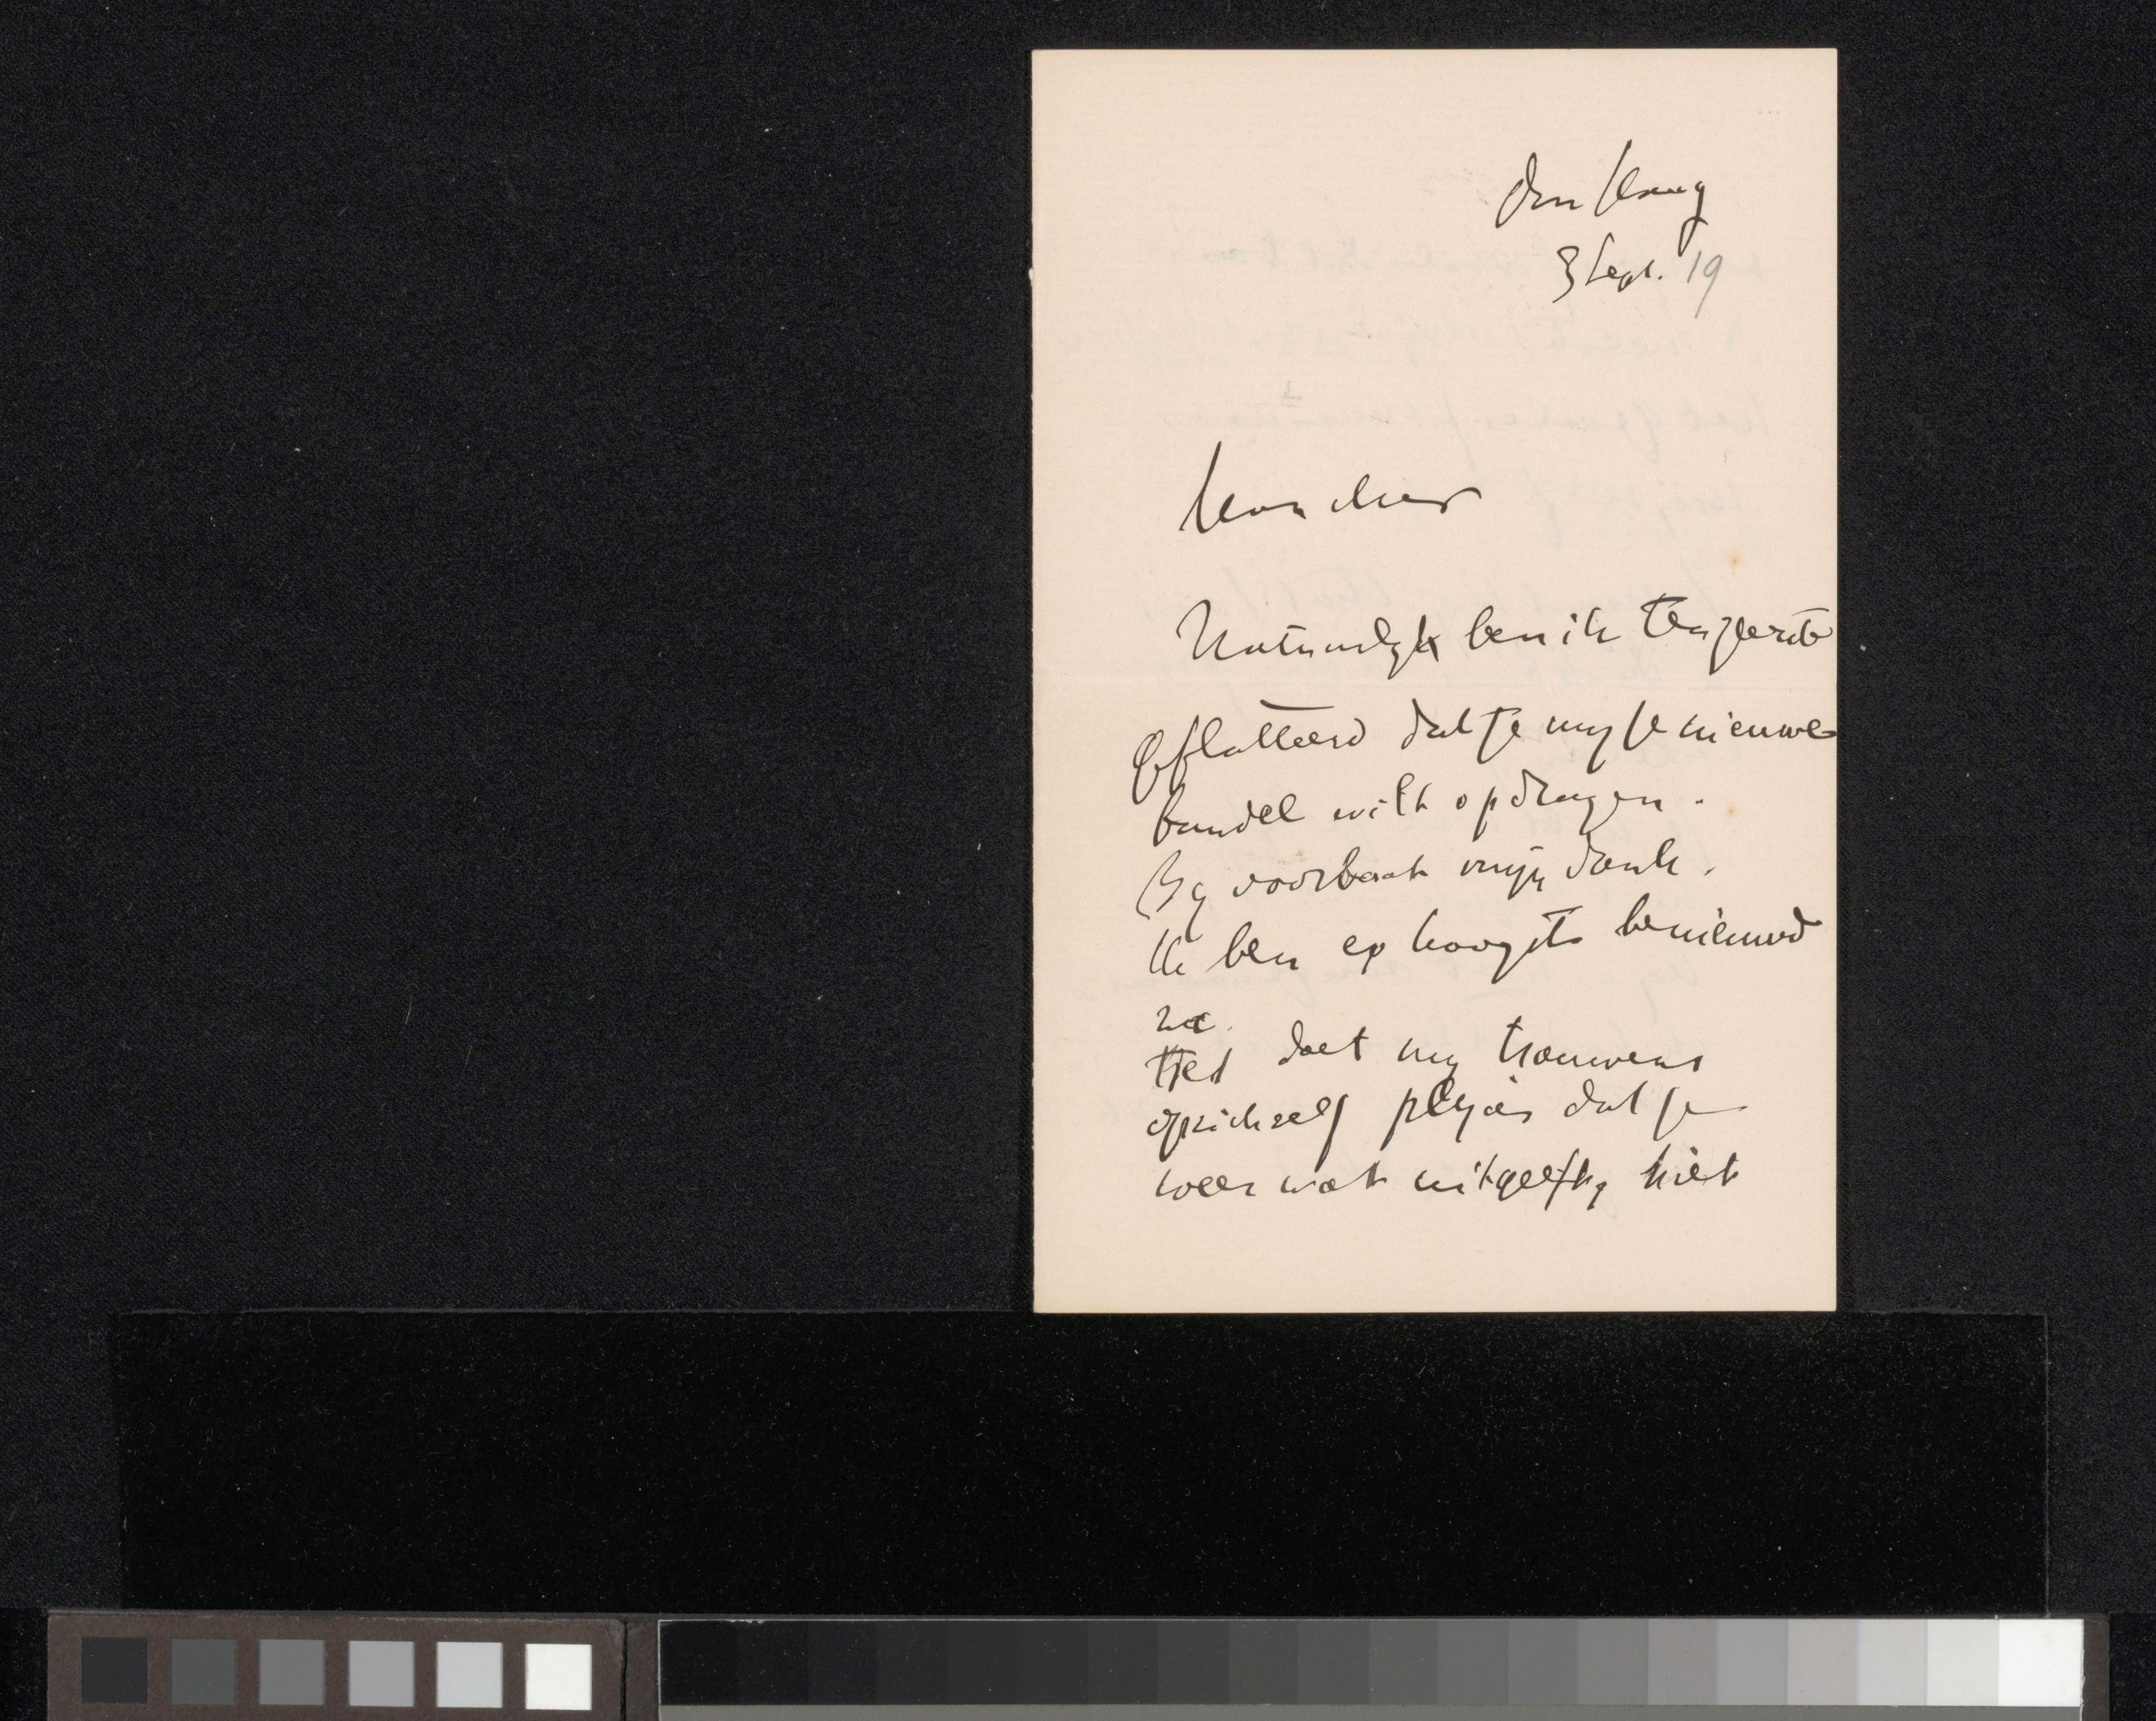 den Haag
3 Sept. 19
Mon cher
Natuurlyk ben ik ten zeerste
geflatteerd dat je my je nieuwe
bundel wilt opdragen.
By voorbaat mijn dank.
Ik ben er hoogst benieuwd
na.
Het doet my trouwens
opzichzelf plezier dat je
weer wat uitgeeft, hiet